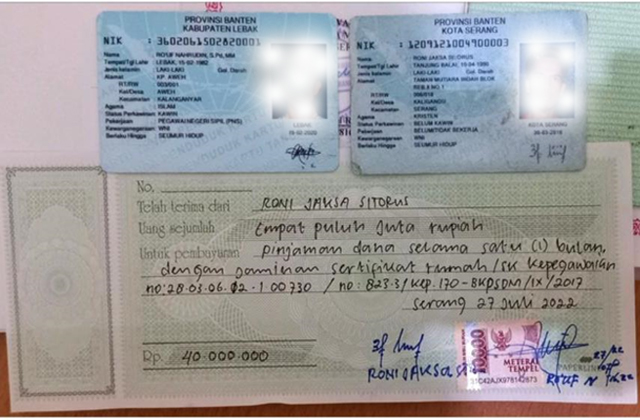 PROVINSI BANTEN
KABUPATEN LEBAK
NIK : 3602061502820001
Nama
Tempat/Tgl Lahir : LEBAK, 15-02-1982
Jenis kelamin : LAKI-LAKI Gol. Darah
Alamat : KP. AWEH
RT/RW
Kel/Desa : AWEH
Kecamatan : KALANGANYAR
Agama : ISLAM
Status Perkawinan : KAWIN
Pekerjaan : PEGAWAI NEGERI SIPIL (PNS)
Kewarganegaraan : WNI
Berlaku Hingga : SEUMUR HIDUP
LEBAK
PROVINSI BANTEN
KOTA SERANG
NIK : 1209121004900003
Nama : RONI JAKSA SITORUS
Tempat/Tgl Lahir : TANJUNG BALAI, 10-04-1990
Jenis Kelamin : LAKI-LAKI Gol. Darah
Alamat : TAMAN MUTIARA INDAH BLOK
RT/RW
Kel/Desa : KALIGANDU
Kecamatan : SERANG
Agama : KRISTEN
Status Perkawinan : BELUM KAWIN
Pekerjaan : BELUM/TIDAK BEKERJA
Kewarganegaraan : WNI
Berlaku Hingga : SEUMUR HIDUP
KOTA SERANG
No.
Telah terima dari RONI JAKSA SITORUS
Uang sejumlah Empat puluh Juta rupiah
Untuk pembayaran pinjaman dana selama satu (1) bulan,
dengan jaminan sertifikat rumah / SK Kepegawaian
no: 28.03.06.02.1.00730 / no: 823.3/Kep.170-BKPSDM/IX/2017
Serang 27 Juli 2022
Rp. 40.000.000
RONI JAKSA
10000
METERAI
TEMPEL
PAPERLINE